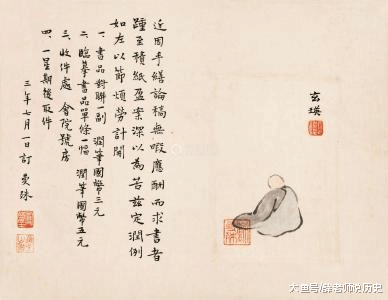 玄瑛
近因手繕論稿無暇應酬而求書者
踵至積紙盈案深以為苦茲定潤例
如左以節煩勞計開
一、書品對聯一副 潤筆國幣三元
二、臨摹書品單條一幅 潤筆國幣五元
三、收件處 會院號房
四、一星期後取件
三年七月一日訂 曼殊
大鱼号/薛老师说历史